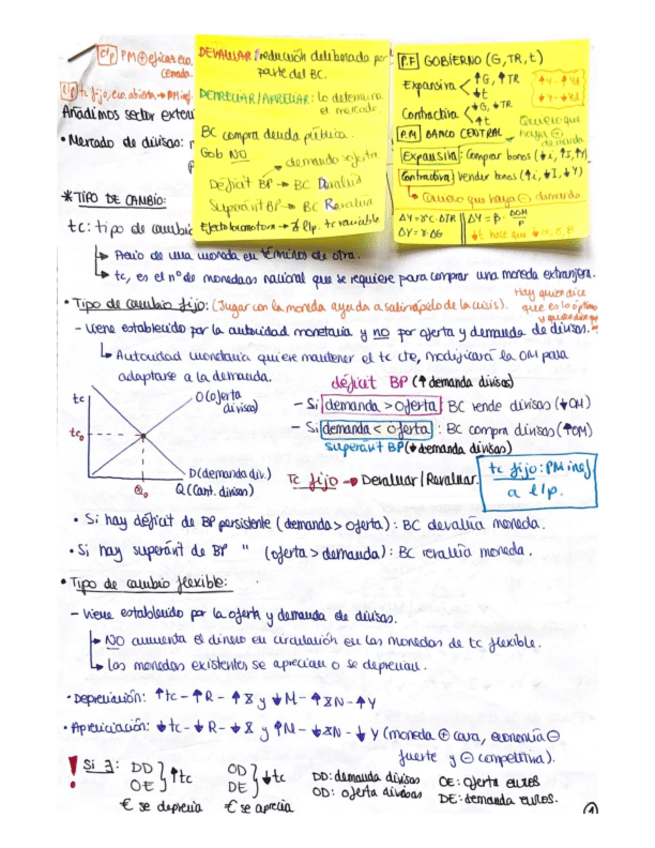 c/p PM⊕eficaz eco.
cerrada.
l/p tc fijo, eco. abierta → PM inef.
Añadimos sector exteri
• Mercado de divisas:
DEVALUAR/reducción deliberada por
parte del BC.
DEPRECIAR/APRECIAR: lo determina
el mercado.
BC compra deuda pública.
Gob NO
demanda > oferta.
Déficit BP → BC Devalúa
Superávit BP → BC Revalúa
Efecto locomotora → l/p. tc variable
P.F GOBIERNO (G, TR, t)
Expansiva < ↑G, ↑TR
↓t
Contractiva < ↓G, ↓TR
↑t
P.M BANCO CENTRAL
Quiero que
haya ⊖
demanda
Expansiva: Comprar bonos (↓i, ↑I, ↑Y)
Contractiva: Vender bonos (↑i, ↓I, ↓Y)
Quiero que haya ⊖ demanda
ΔY = α·c·ΔTR || ΔY = β · ΔOM/P
ΔY = α·ΔG
↓t hace que
* TIPO DE CAMBIO:
tc: tipo de cambio
↳ Precio de una moneda en términos de otra.
↳ tc, es el nº de monedas nacional que se requiere para comprar una moneda extranjera.
• Tipo de cambio fijo: (Jugar con la moneda ayuda a salir rápido de la crisis).
Hay quien dice
que es lo óptimo
y quien dice que
- Viene establecido por la autoridad monetaria y no por oferta y demanda de divisas.
↳ Autoridad monetaria quiere mantener el tc cte, modificará la OM para
adaptarse a la demanda.
tc
O(oferta
divisas)
tc₀
D(demanda div.)
Q₀
Q (Cant. divisas)
déficit BP (↑ demanda divisas)
- Si demanda > oferta: BC vende divisas (↓OM)
- Si demanda < oferta: BC compra divisas (↑OM)
superávit BP (↓ demanda divisas)
Tc fijo → Devaluar/Revaluar.
tc fijo: PM inef
a l/p.
• Si hay déficit de BP persistente (demanda > oferta): BC devalúa moneda.
• Si hay superávit de BP " (oferta > demanda): BC revalúa moneda.
• Tipo de cambio flexible:
- Viene establecido por la oferta y demanda de divisas.
↳ NO aumenta el dinero en circulación en las monedas de tc flexible.
↳ Las monedas existentes se aprecian o se deprecian.
• Depreciación: ↑tc - ↑R - ↑X y ↓M - ↑XN - ↑Y
• Apreciación: ↓tc - ↓R - ↓X y ↑M - ↓XN - ↓Y (moneda ⊕ cara, economía ⊖
fuerte y ⊖ competitiva).
! Si ∃: DD OE } ↑tc OD DE } ↓tc
€ se deprecia € se aprecia
DD: demanda divisas OE: oferta euros
OD: oferta divisas DE: demanda euros.
1